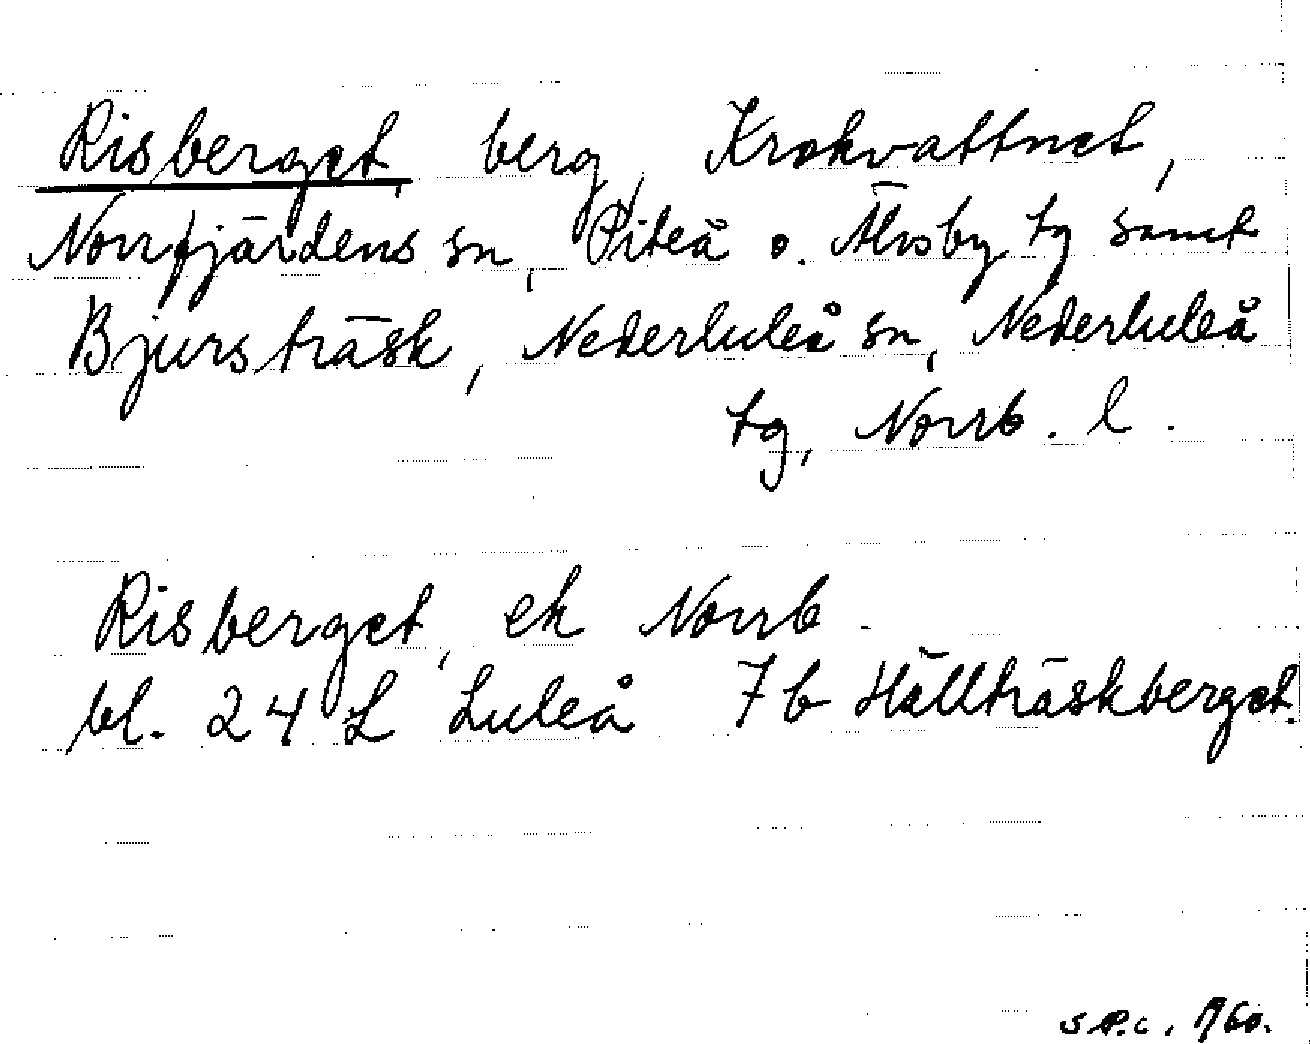 Risberget, berg, Krokvattnet,
Norrfjärdens sn, Piteå o. Älvsby tg samt
Bjursträsk, Nederluleå sn, Nederluleå
tg, Norrb. l.
Risberget, ek Norrb.
bl. 24 L Luleå 7b Hällträskberget.
1960.